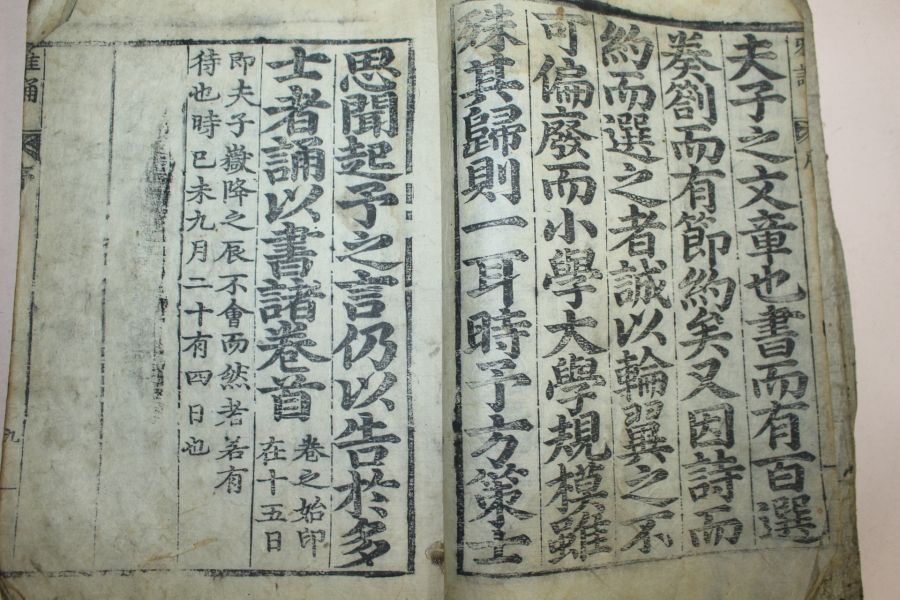 夫子之文章也書而有百選
奏劄而有節約矣又因詩而
約而選之者誠以輪翼之不
可偏廢而小學大學規模雖
殊其歸則一耳時予方策士
思聞起予之言仍以告於多
士者誦以書諸卷首
卷之始印
在十五日
即夫子嶽降之辰不會而然者若有
待也時己未九月二十有四日也
雅誦
九